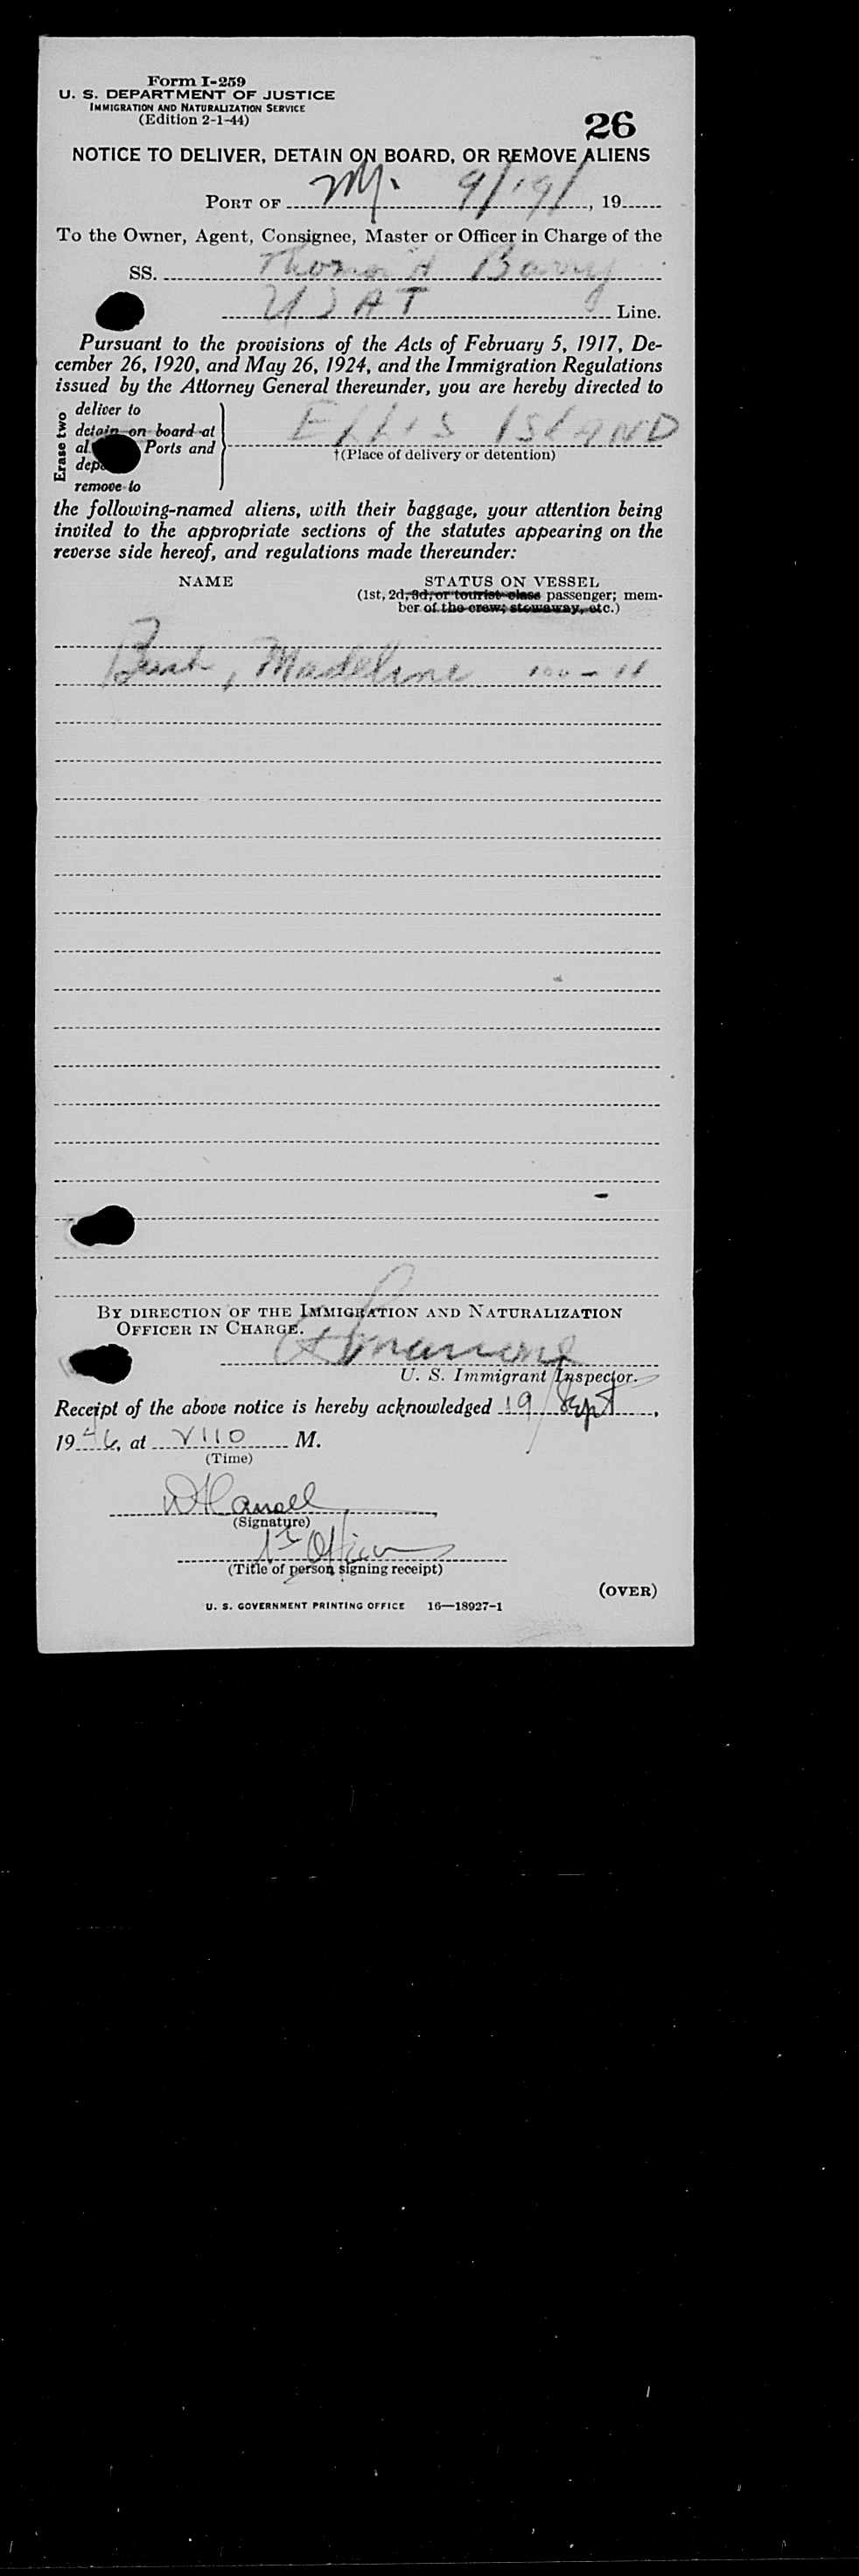 Form I-259
U. S. DEPARTMENT OF JUSTICE
IMMIGRATION AND NATURALIZATION SERVICE
(Edition 2-1-44)
26
NOTICE TO DELIVER, DETAIN ON BOARD, OR REMOVE ALIENS
PORT OF 9/19/, 19
To the Owner, Agent, Consignee, Master or Officer in Charge of the
SS. Thomas H Barry
USAT Line.
Pursuant to the provisions of the Acts of February 5, 1917, De-
cember 26, 1920, and May 26, 1924, and the Immigration Regulations
issued by the Attorney General thereunder, you are hereby directed to
Erase two
deliver to
detain on board at
al Ports and
dep
remove to
ELLIS ISLAND
†(Place of delivery or detention)
the following-named aliens, with their baggage, your attention being
invited to the appropriate sections of the statutes appearing on the
reverse side hereof, and regulations made thereunder:
NAME STATUS ON VESSEL
(1st, 2d, 3d, or tourist class passenger; mem-
ber of the crew; stowaway, etc.)
Madeline 100-11
BY DIRECTION OF THE IMMIGRATION AND NATURALIZATION
OFFICER IN CHARGE.
U. S. Immigrant Inspector.
Receipt of the above notice is hereby acknowledged 19 Sept,
1946, at M.
(Time)
(Signature)
1st Officer
(Title of person signing receipt)
(OVER)
U. S. GOVERNMENT PRINTING OFFICE 16—18927-1